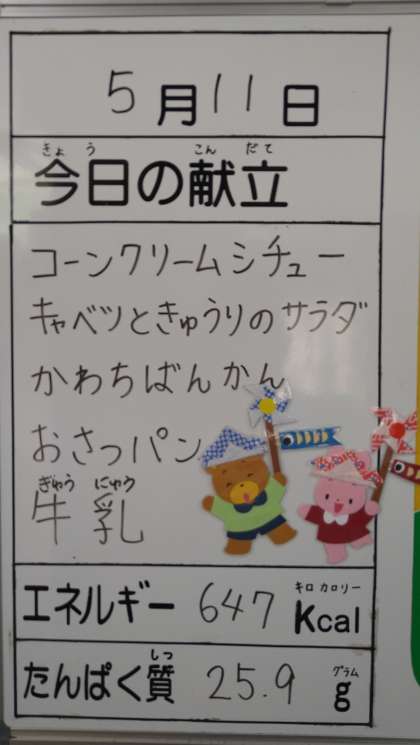 5月11日
きょう こんだて
今日の献立
コーンクリームシチュー
キャベツときゅうりのサラダ
かわちばんかん
おさつパン
ぎゅう にゅう
牛乳
キロカロリー
エネルギー 647 Kcal
しつ グラム
たんぱく質 25.9 g